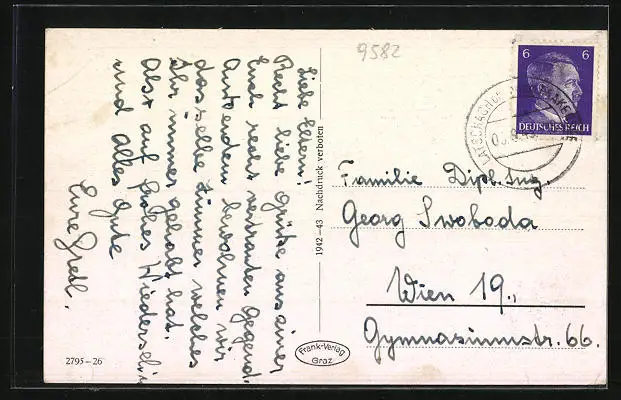 Liebe Eltern!
Recht liebe Grüße aus einer
Euch recht vertrauten Gegend.
Außerdem bewohnen wir
dasselbe Zimmer welches
Ihr immer gehabt hat.
Also auf frohes Wiedersehn
und alles Gute
Eure Gretl.
2795-26
1942-43 Nachdruck verboten
Frank-Verlag
Graz
9582
6 6
DEUTSCHES REICH
Familie Dipl. Ing.
Georg Swoboda
Wien 19.,
Gymnasiumstr. 66.